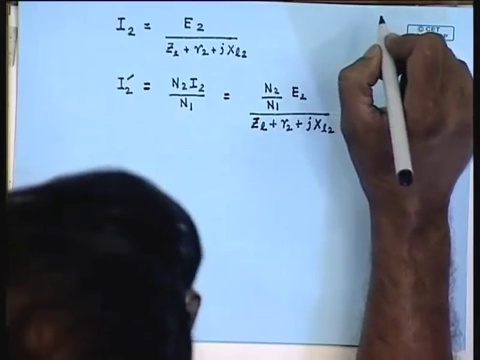 I₂ = E₂ / (Z₂ + r₂ + jXl₂)
I₂′ = N₂I₂ / N₁ = (N₂/N₁) E₂ / (Zℓ + r₂ + jXl₂)
© CET